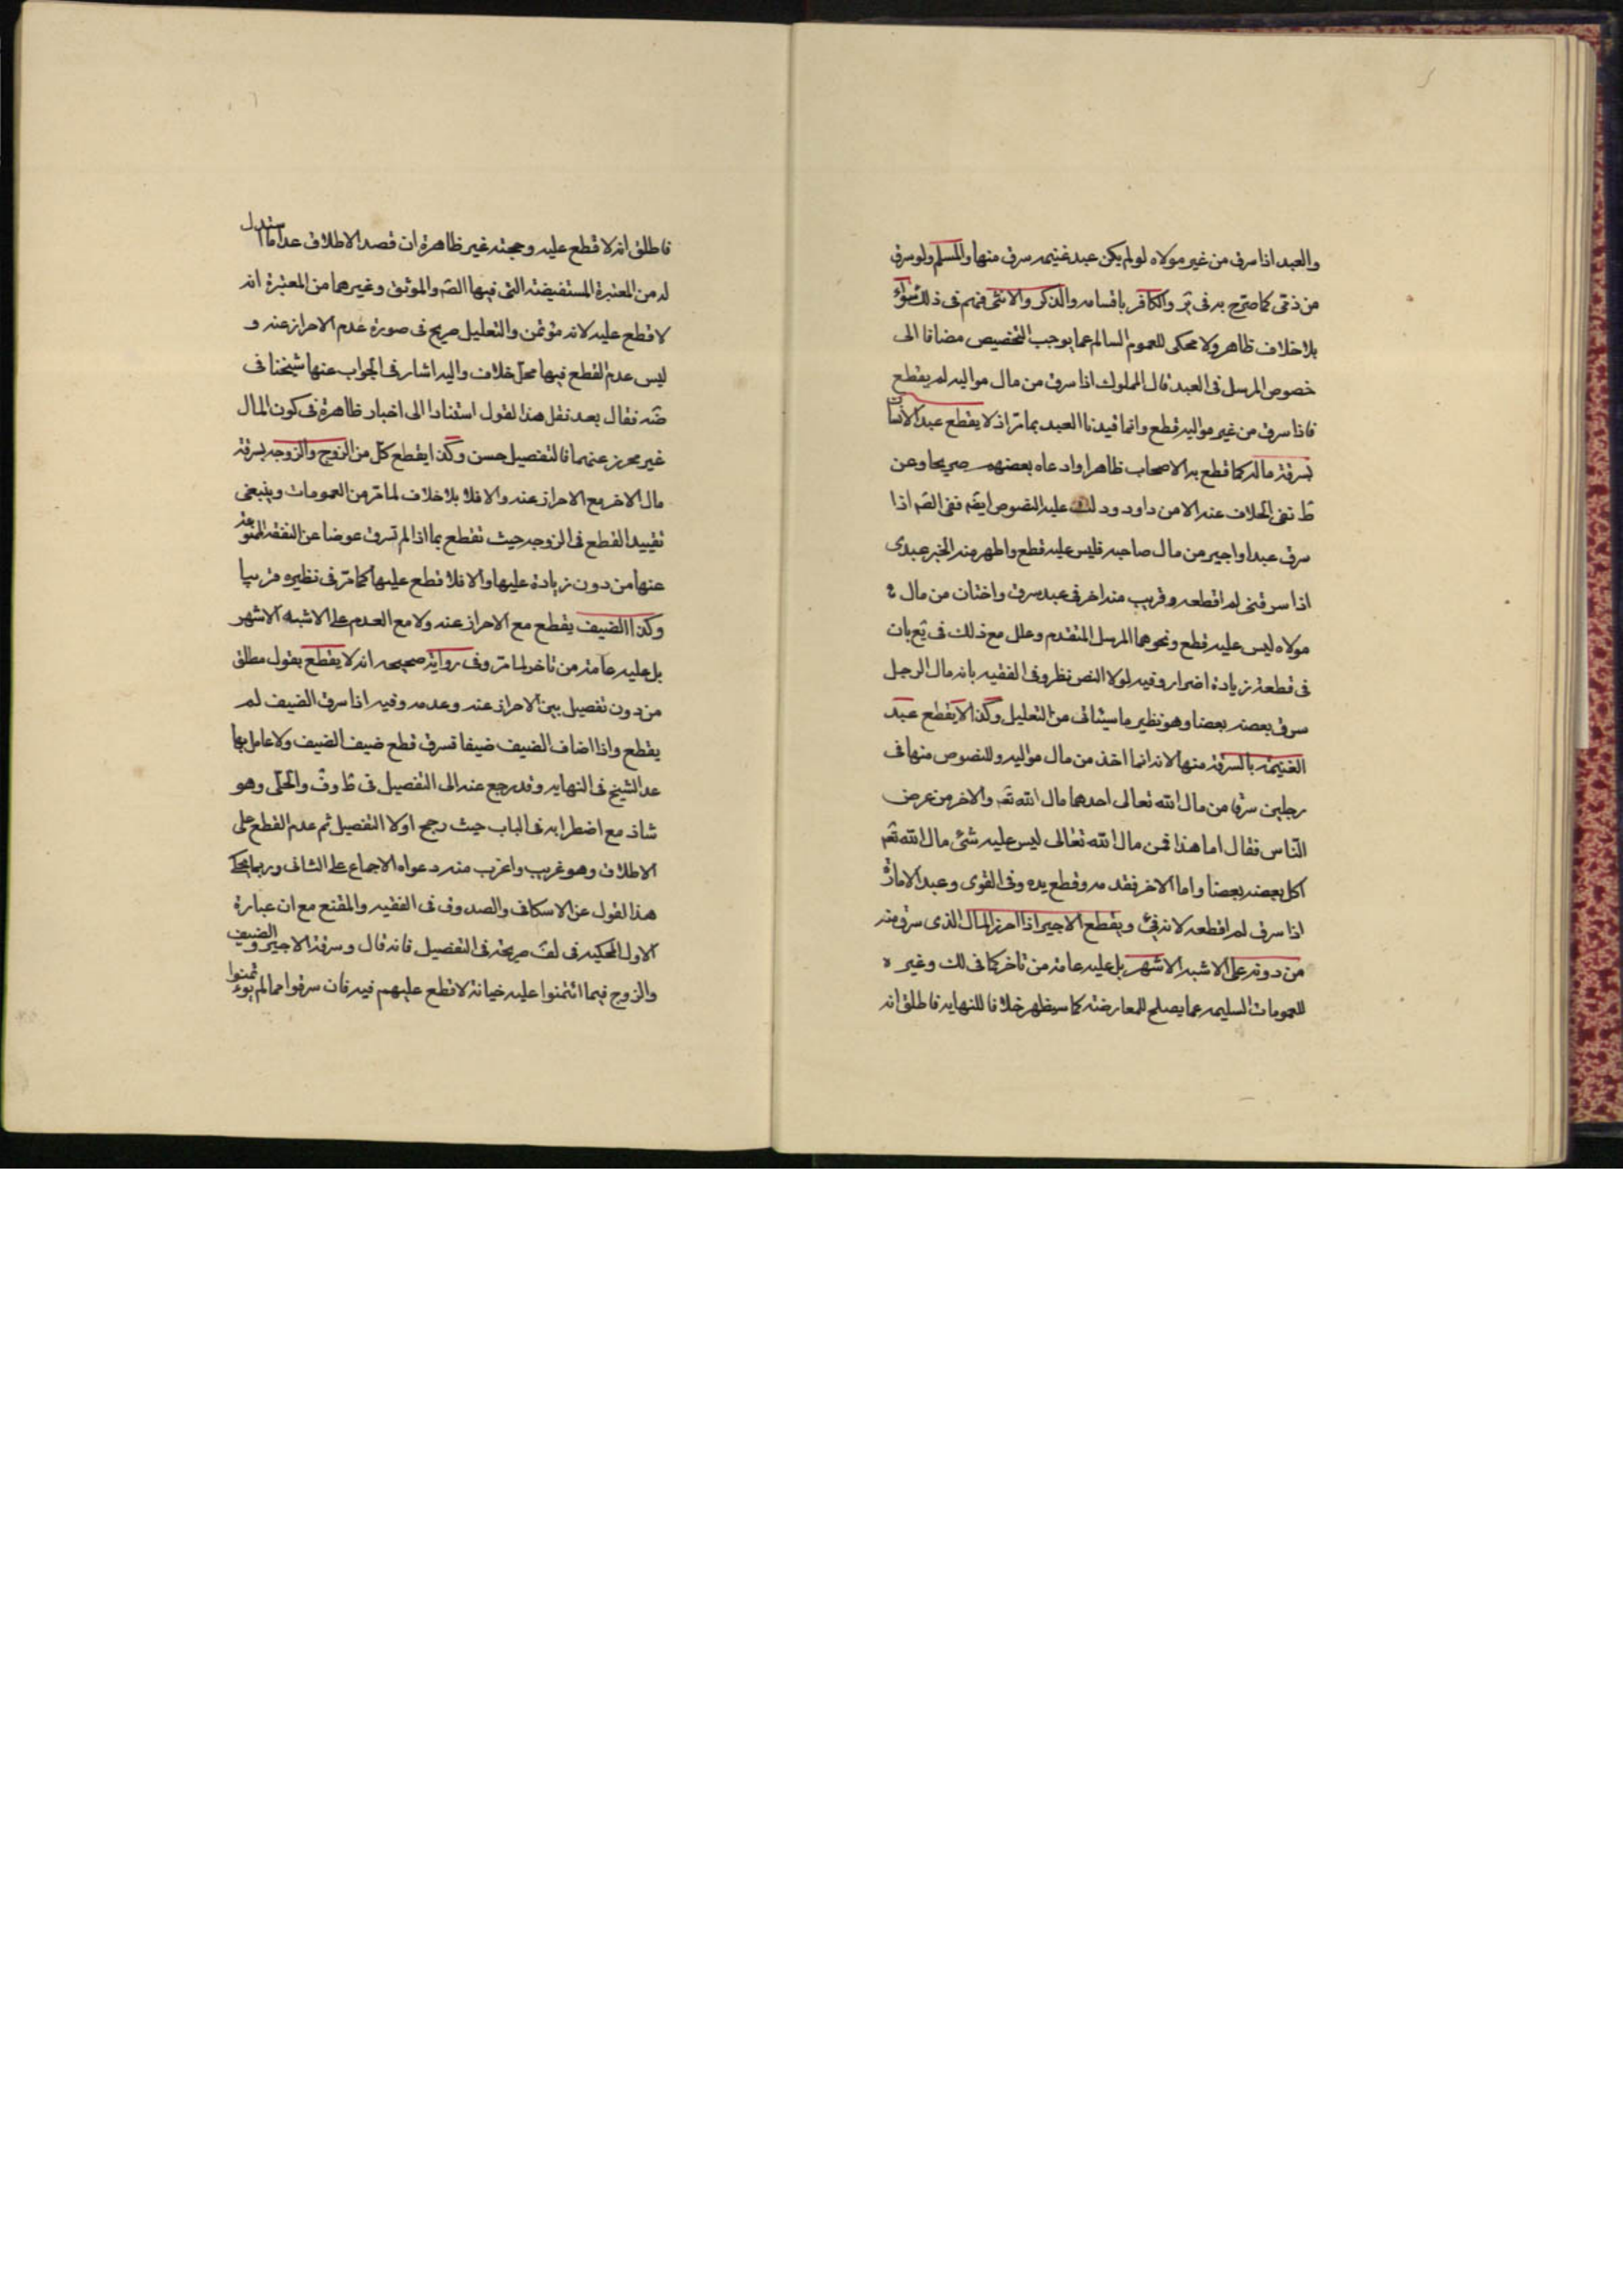 والعبد اذا سرق من غير مولاه لو لم يكن عبد غنيمه سرق منها والمسلم ولو سرق
من ذمّى كما صرّح به فى ير والكافر باقسامه والذكر والانثى فهم فى ذلك سواء
بلا خلاف ظاهر ولا محكى للعموم السالم عما يوجب التخصيص مضافا الى
خصوص المرسل فى العبد قال المملوك اذا سرق من مال مواليه لم يقطع
فاذا سرق من غير مواليه قطع وانما قيدنا العبد بما مرّ اذ لا يقطع عبد الانسان
بسرقة ماله كما قطع به الاصحاب ظاهرا وادعاه بعضهم صريحا وعن
ط نفى الخلاف عنه الا من داود ود عليه النصوص ايضم ففى الصّم اذا
سرق عبد او اجير من مال صاحبه فليس عليه قطع واظهر منه الخبر عبدى
اذا سرقنى لم اقطعه وقريب منه اخر فى عبد سرق واختان من مال
مولاه ليس عليه قطع ونحوهما المرسل المتقدم وعلل مع ذلك فى يع بان
فى قطعه زيادة اضرار وفيه لولا النص نظر وفى الفقيه بانه مال الرجل
سرق بعضه بعضا وهو نظير ما سيأتى من التعليل وكذا لا يقطع عبد
الغنيمة بالسرقة منها لانه انما اخذ من مال مواليه وللنصوص منها فى
رجلين سرقا من مال الله تعالى احدهما مال الله تعم والاخر من عرض
النّاس فقال اما هذا فمن مال الله تعالى ليس عليه شئ مال الله تعم
اكل بعضه بعضا واما الاخر فقدمه وقطع يده وفى القوى وعبد الامارة
اذا سرق لم اقطعه لانه فئ ويقطع الاجير اذا احرز المال الذى سرق منه
من دونه على الاشبه الاشهر بل عليه عامة من تاخر كما فى لك وغيره
للعمومات السليمه عما يصلح للمعارضة كما سيظهر خلافا للنهايه فاطلق انه
فاطلق انه لا قطع عليه وحجته غير ظاهرة ان قصد الاطلاق عدا ما استدل
له من المعتبرة المستفيضة التى فيها الصّم والموثق وغيرهما من المعتبرة انه
لا قطع عليه لانه مؤتمن والتعليل صريح فى صورة عدم الاحراز عنه و
ليس عدم القطع فيها محل خلاف واليه اشار فى الجواب عنها شيخنا فى
ضه فقال بعد نقل هذا القول استنادا الى اخبار ظاهرة فى كون المال
غير محرز عنهما فالتفصيل حسن وكذا يقطع كلّ من الزوج والزوجه بسرقة
مال الاخر مع الاحراز عنه والا فلا بلا خلاف لما مرّ من العمومات وينبغى
تقييد القطع فى الزوجه حيث تقطع بما اذا لم تسرق عوضا عن النفقة الممنوعة
عنها من دون زيادة عليها والا فلا قطع عليها كما مرّ فى نظيره قريبا
وكذا الضيف يقطع مع الاحراز عنه ولا مع العدم على الاشبه الاشهر
بل عليه عامة من تاخر لما مرّ وفى رواية صحيحه انه لا يقطع بقول مطلق
من دون تفصيل بين الاحراز عنه وعدمه وفيه اذا سرق الضيف لم
يقطع واذا اضاف الضيف ضيفا فسرق قطع ضيف الضيف ولا عامل بها
عدا الشيخ فى النهايه وقد رجع عنه الى التفصيل فى ط وف والحلّى وهو
شاذ مع اضطرابه فى الباب حيث رجح اولا التفصيل ثم عدم القطع على
الاطلاق وهو غريب واغرب منه دعواه الاجماع على الثانى وربما يحكى
هذا القول عن الاسكافى والصدوق فى الفقيه والمقنع مع ان عبارة
الاول المحكيه فى لف صريحة فى التفصيل فانه قال وسرقة الاجير والضيف
والزوج فيما ائتمنوا عليه خيانة لا قطع عليهم فيه فان سرقوا مما لم يؤتمنوا